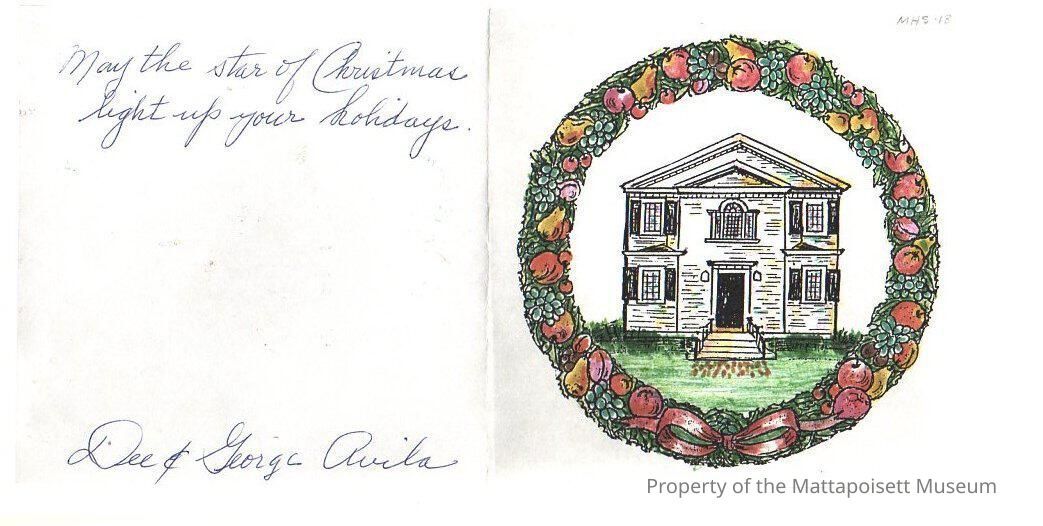 May the star of Christmas
light up your holidays.
Dee & George Avila
MHS-18
Property of the Mattapoisett Museum